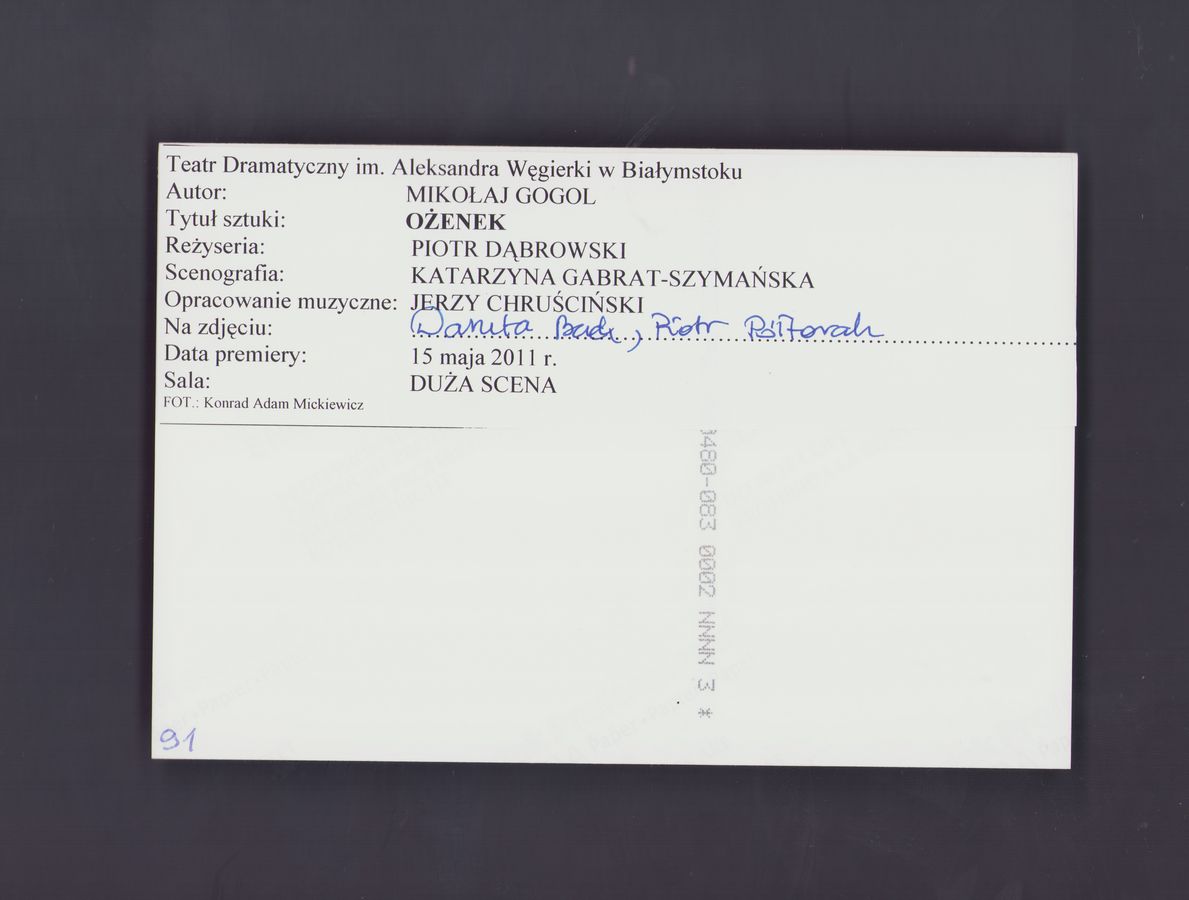 Teatr Dramatyczny im. Aleksandra Węgierki w Białymstoku
Autor: MIKOŁAJ GOGOL
Tytuł sztuki: OŻENEK
Reżyseria: PIOTR DĄBROWSKI
Scenografia: KATARZYNA GABRAT-SZYMAŃSKA
Opracowanie muzyczne: JERZY CHRUŚCIŃSKI
Na zdjęciu: Danuta Bach, Piotr Półtorak
Data premiery: 15 maja 2011 r.
Sala: DUŻA SCENA
FOT.: Konrad Adam Mickiewicz
480-083 0002 NNNN 3 *
91